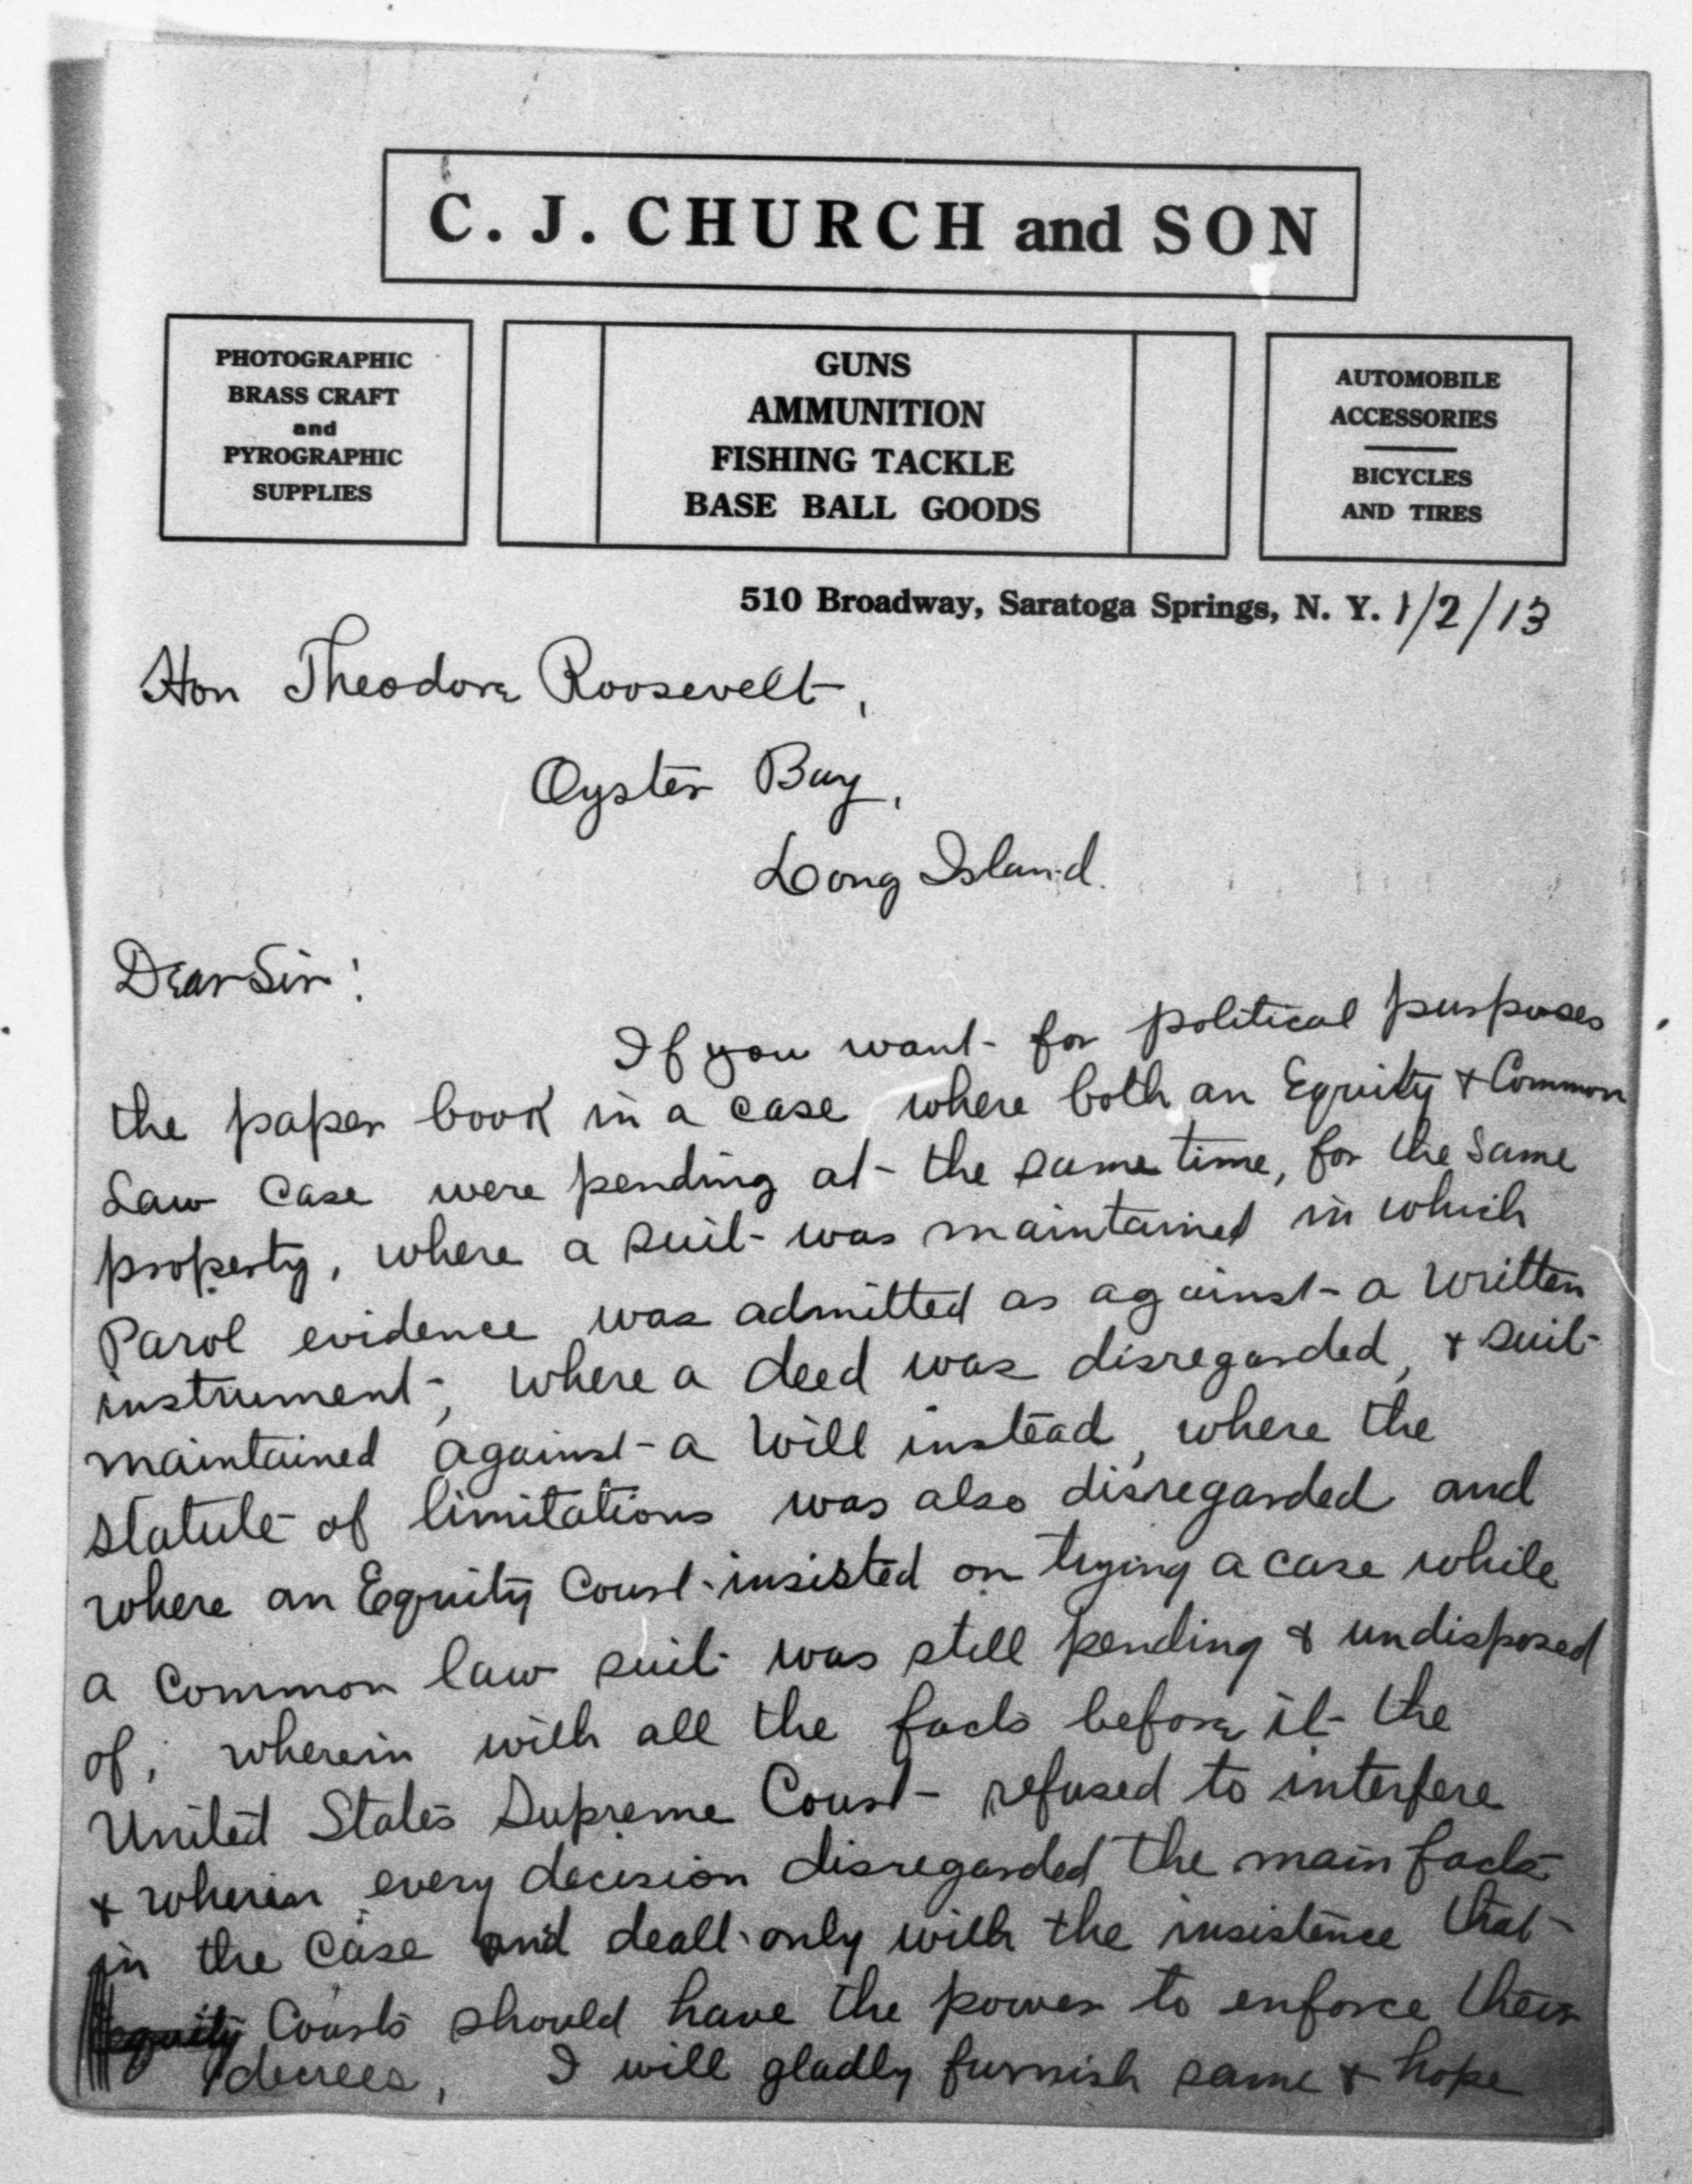 C. J. CHURCH and SON
PHOTOGRAPHIC
BRASS CRAFT
and
PYROGRAPHIC
SUPPLIES
GUNS
AMMUNITION
FISHING TACKLE
BASE BALL GOODS
AUTOMOBILE
ACCESSORIES
BICYCLES
AND TIRES
510 Broadway, Saratoga Springs, N. Y. 1/2/13
Hon Theodore Roosevelt,
Oyster Bay,
Long Island.
Dear Sir!
If you want for political purposes
the paper book in a case where both an Equity & Common
Law Case were pending at the same time, for the same
property, where a suit was maintained in which
Parol evidence was admitted as against a written
instrument, where a deed was disregarded, & suit
maintained against a will instead, where the
statute of limitations was also disregarded and
where an Equity Court insisted on trying a case while
a Common law suit was still pending & undisposed
of, wherein with all the facts before it the
United States Supreme Court refused to interfere
& wherein every decision disregarded the main facts
in the case and dealt only with the insistence that
Equity Courts should have the power to enforce their
decrees, I will gladly furnish same & hope